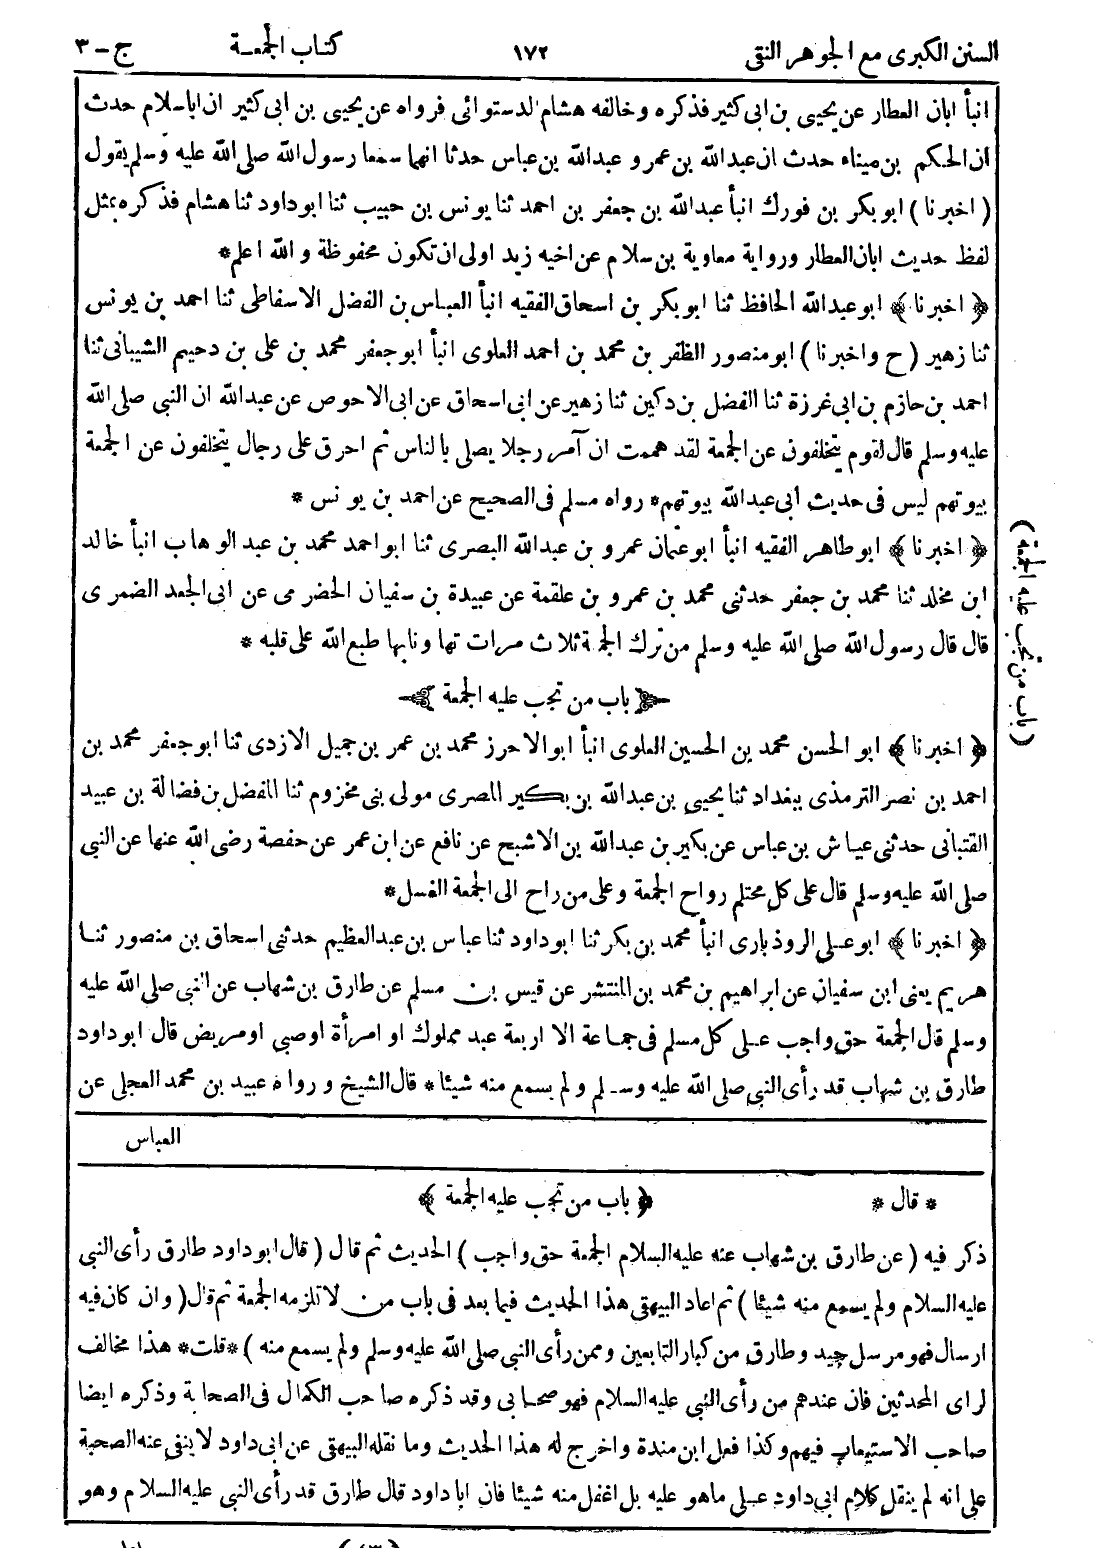 السنن الكبرى مع الجوهر النقي ١٧٢ كتاب الجمعة ج - ٣
انبأ ابان العطار عن يحيى بن ابى كثير فذكره وخالفه هشام الدستوائى فرواه عن يحيى بن ابى كثير ان اباسلام حدث
ان الحكم بن ميناء حدث ان عبدالله بن عمر و عبدالله بن عباس حدثا انهما سمعا رسول الله صلى الله عليه وسلم يقول
( اخبرنا ) ابوبكر بن فورك انبأ عبدالله بن جعفر بن احمد ثنا يونس بن حبيب ثنا ابوداود ثنا هشام فذكره بمثل
لفظ حديث ابان العطار ورواية معاوية بن سلام عن اخيه زيد اولى ان تكون محفوظة والله اعلم *
﴿ اخبرنا ﴾ ابو عبدالله الحافظ ثنا ابوبكر بن اسحاق الفقيه انبأ العباس بن الفضل الاسفاطى ثنا احمد بن يونس
ثنا زهير ( ح واخبرنا ) ابو منصور الظفر بن محمد بن احمد العلوى انبأ ابو جعفر محمد بن على بن دحيم الشيبانى ثنا
احمد بن حازم بن ابى غرزة ثنا الفضل بن دكين ثنا زهير عن ابى اسحاق عن ابى الاحوص عن عبدالله ان النبى صلى الله
عليه وسلم قال لقوم يتخلفون عن الجمعة لقد هممت ان آمر رجلا يصلى بالناس ثم احرق على رجال يتخلفون عن الجمعة
بيوتهم ليس فى حديث أبى عبدالله بيوتهم * رواه مسلم فى الصحيح عن احمد بن يونس *
﴿ اخبرنا ﴾ ابو طاهر الفقيه انبأ ابو عثمان عمرو بن عبدالله البصرى ثنا ابو احمد محمد بن عبد الوهاب انبأ خالد
ابن مخلد ثنا محمد بن جعفر حدثنى محمد بن عمرو بن علقمة عن عبيدة بن سفيان الحضرمى عن ابى الجعد الضمرى
قال قال رسول الله صلى الله عليه وسلم من ترك الجمعة ثلاث مرات تهاونابها طبع الله على قلبه *
باب من تجب عليه الجمعة
( باب من تجب عليه الجمعة )
﴿ اخبرنا ﴾ ابو الحسن محمد بن الحسين العلوى انبأ ابو الاحرز محمد بن عمر بن جميل الازدى ثنا ابو جعفر محمد بن
احمد بن نصر الترمذى ببغداد ثنا يحيى بن عبدالله بن بكير المصرى مولى بنى مخزوم ثنا المفضل بن فضالة بن عبيد
القتبانى حدثنى عياش بن عباس عن بكير بن عبدالله بن الاشج عن نافع عن ابن عمر عن حفصة رضى الله عنها عن النبى
صلى الله عليه وسلم قال على كل محتلم رواح الجمعة وعلى من راح الى الجمعة الغسل *
﴿ اخبرنا ﴾ ابو عـلى الروذبارى انبأ محمد بن بكر ثنا ابوداود ثنا عباس بن عبدالعظيم حدثنى اسحاق بن منصور ثنـا
هريم يعنى ابن سفيان عن ابراهيم بن محمد بن المنتشر عن قيس بن مسلم عن طارق بن شهاب عن النبى صلى الله عليه
وسلم قال الجمعة حق واجب عـلى كل مسلم فى جماعة الا اربعة عبد مملوك او امرأة اوصبى اومريض قال ابوداود
طارق بن شهاب قد رأى النبى صلى الله عليه وسـلم ولم يسمع منه شيئا * قال الشيخ ورواه عبيد بن محمد العجلى عن
العباس
* قال * ﴿ باب من تجب عليه الجمعة ﴾
ذكر فيه ( عن طارق بن شهاب عنه عليه السلام الجمعة حق واجب ) الحديث ثم قال ( قال ابوداود طارق رأى النبى
عليه السلام ولم يسمع منه شيئا ) ثم اعاد البيهقى هذا الحديث فيما بعد فى باب من لا تلزمه الجمعة ثم قال ( وان كان فيه
ارسال فهو مرسل جيد وطارق من كبار التابعين وممن رأى النبى صلى الله عليه وسلم ولم يسمع منه ) * قلت * هذا مخالف
لراى المحدثين فان عندهم من رأى النبى عليه السلام فهو صحابى وقد ذكره صاحب الكمال فى الصحابة وذكره ايضا
صاحب الاستيعاب فيهم وكذا فعل ابن مندة واخرج له هذا الحديث وما نقله البيهقى عن ابى داود لا ينفى عنه الصحبة
على انه لم ينقل كلام ابى داود عـلى ماهو عليه بل اغفل منه شيئا فان ابا داود قال طارق قد رأى النبى عليه السلام وهو